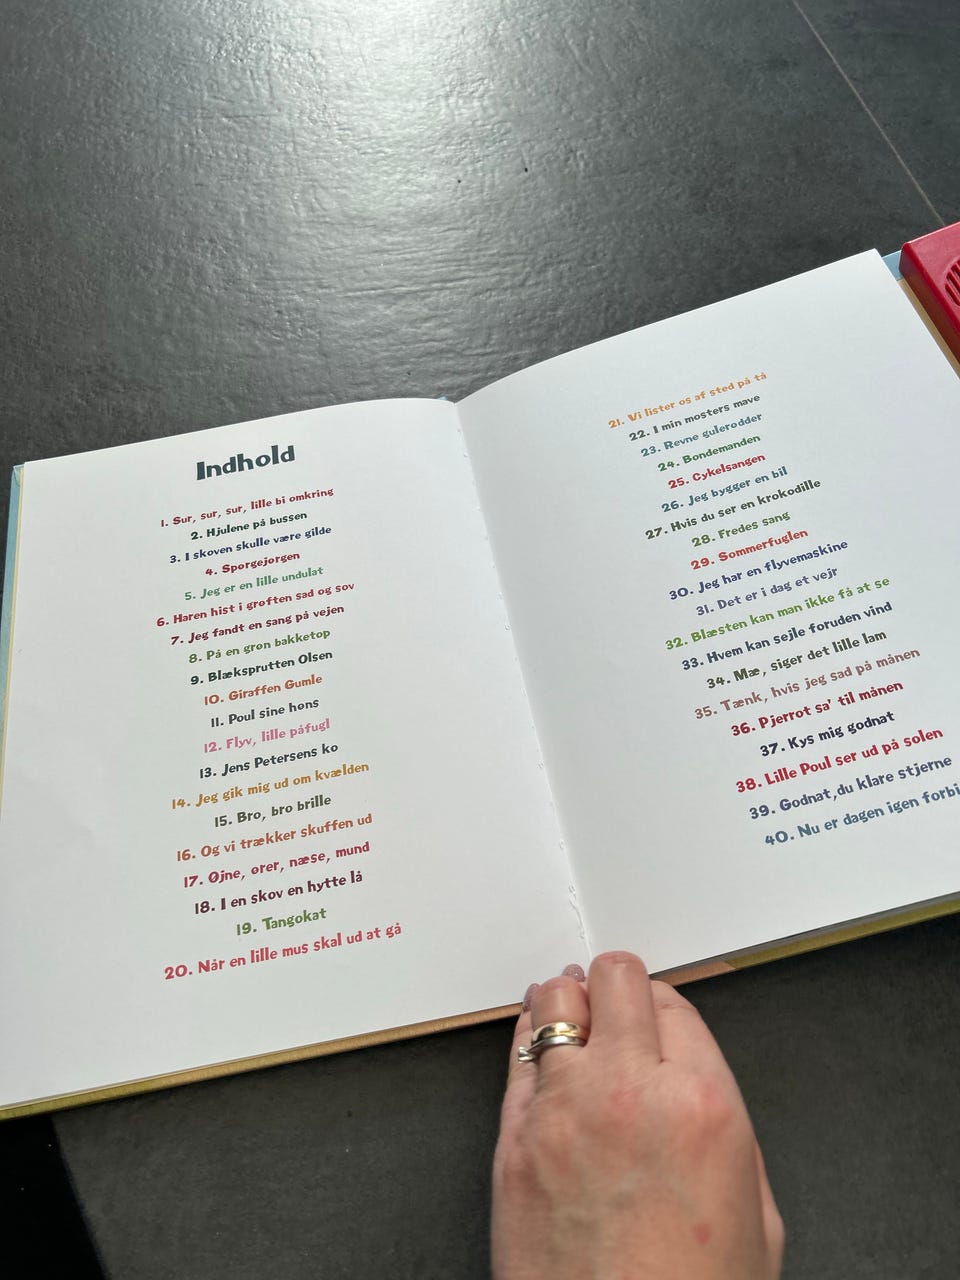 Indhold
1. Sur, sur, sur, lille bi omkring
2. Hjulene på bussen
3. I skoven skulle være gilde
4. Spørgejørgen
5. Jeg er en lille undulat
6. Haren hist i grøften sad og sov
7. Jeg fandt en sang på vejen
8. På en grøn bakketop
9. Blæksprutten Olsen
10. Giraffen Gumle
11. Poul sine høns
12. Flyv, lille påfugl
13. Jens Petersens ko
14. Jeg gik mig ud om kvælden
15. Bro, bro brille
16. Og vi trækker skuffen ud
17. Øjne, ører, næse, mund
18. I en skov en hytte lå
19. Tangokat
20. Når en lille mus skal ud at gå
21. Vi lister os af sted på tå
22. I min mosters mave
23. Revne gulerødder
24. Bondemanden
25. Cykelsangen
26. Jeg bygger en bil
27. Hvis du ser en krokodille
28. Fredes sang
29. Sommerfuglen
30. Jeg har en flyvemaskine
31. Det er i dag et vejr
32. Blæsten kan man ikke få at se
33. Hvem kan sejle foruden vind
34. Mæ, siger det lille lam
35. Tænk, hvis jeg sad på månen
36. Pjerrot sa' til månen
37. Kys mig godnat
38. Lille Poul ser ud på solen
39. Godnat, du klare stjerne
40. Nu er dagen igen forbi